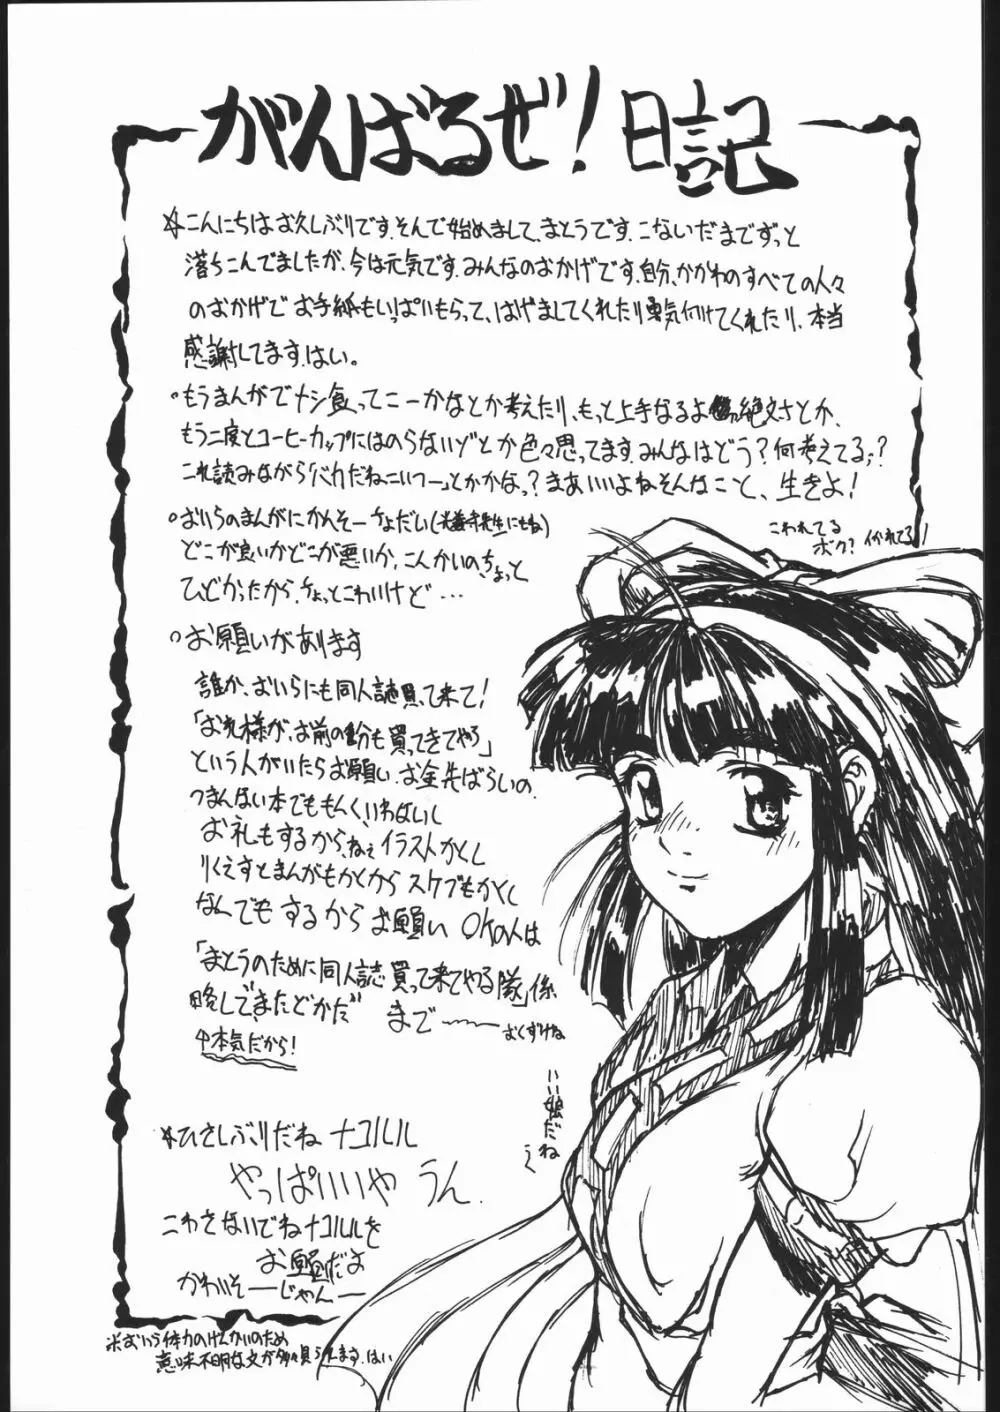 がんばるぜ!日記
☆こんにちはお久しぶりです。そんで始めまして、まとうです。こないだまでずっと
落ちこんでましたが、今は元気です。みんなのおかげです。自分、かかわのすべての人々
のおかげで お手紙もいっぱいもらって、はげましてくれたり勇気付けてくれたり、本当
感謝してます。はい。
・もうまんがでメシ食ってこーかなとか考えたり、もっと上手なるよ 絶対さとか、
もう二度とコーヒーカップにはのらないゾとか色々思ってます。みんなはどう?何考えてる;?
これ読みながら「バカだねこいつー」とかかなっ?まあいいよねそんなこと、生きよ!
こわれてる
ボク? イかれてる!
・おいらのまんがにかんそーちょだい(先生にもね)
どこが良いかどこが悪いか、こんかいの、ちょっと
ひどかったから、ちょっとこわいけど…
・お願いがあります
誰か、おいらにも同人誌買って来て!
「おれ様が、お前の分も買ってきてやろう」
という人がいたらお願い、お金先ばらいの、
つまんない本でももんくいわないし
お礼もするから、ねぇイラストかくし
りくえすとまんがもかくから スケブもかくし
なんでもするからお願い OKな人は
「まとうのために同人誌買って来てやる隊」係
略して"またどかだ" まで〜〜 よくずけね
↑本気だから!
いい娘だね
うん
☆ひさしぶりだね ナコルル
やっぱいいや うん.
こわさないでねナコルルを
お願いだよ
かわいそーじゃんー
※おいら体力のげんかいのため
意味不明な文が多々見られます。はい